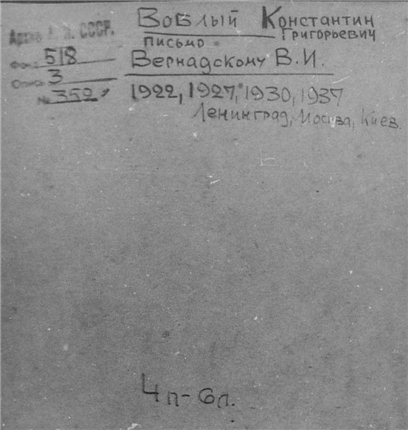 Воблый Константин
Григорьевич
письмо
Вернадскому В.И.
1922, 1927, 1930, 1937
Ленинград, Москва, Киев.
Архив А. Н. СССР.
Фонд 518
Опись 3
№ 359
4п-6л.